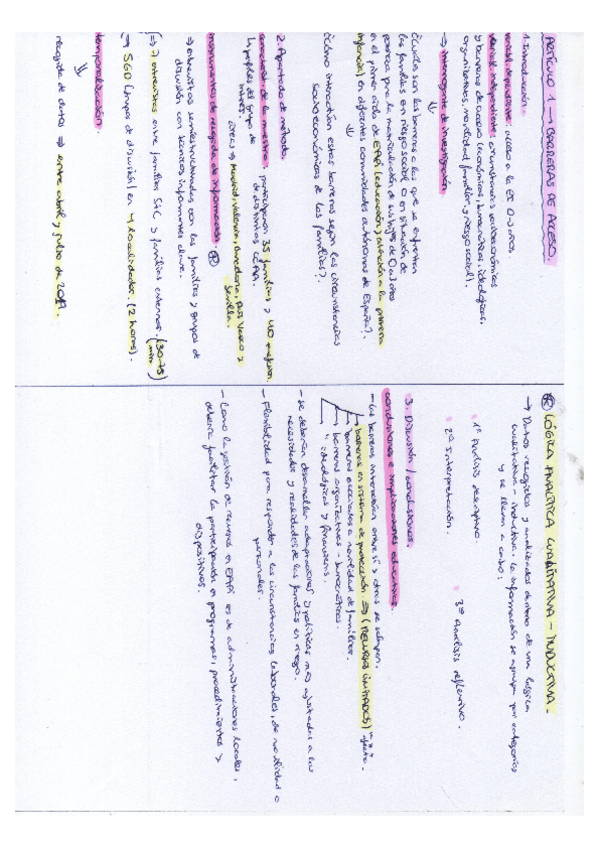 ARTÍCULO 1 → BARRERAS DE ACCESO.
1. Introducción.
variable dependiente: acceso a la EI 0-3 años.
variable independiente: circunstancias socioeconómicas
y barreras de acceso (económicas, burocráticas, ideológicas,
organizativas, movilidad familiar y riesgo social).
→ interrogante de investigación.
⇓
¿Cuáles son las barreras a las que se enfrentan
las familias en riesgo social o en situación de
pobreza para la matriculación de sus hijos de 0 a 3 años
en el primer ciclo de EPAPI (educación y atención a la primera
infancia) en diferentes comunidades autónomas de España?.
⇓
¿Cómo interactúan estas barreras según las circunstancias
socioeconómicas de las familias?.
2. Apartado de método.
: participaron 35 familias y 40
de distintas CCAA.
áreas ⇒ Madrid, Valencia, Barcelona, País Vasco y
Sevilla.
instrumentos de recogida de información. (*)
⇒ entrevistas semiestructuradas con las familias y grupos de
discusión con técnicos informantes clave.
⇒ entrevistas entre familias SAC y familias externas. (30-75)
→ SGD (grupos de discusión) en 4 localidades. (2 horas).
temporalización.
⇓
recogida de datos ⇒ entre abril y julio de
(*) LÓGICA ANALÍTICA CUALITATIVA - INDUCTIVA.
→ Datos recogidos y analizados dentro de una lógica
cualitativa - inductiva: la información se agrupa por categorías
y se llevan a cabo:
1º Análisis descriptivo.
2º Interpretación.
3º Análisis reflexivo.
3. Discusión / conclusiones.
conclusiones e implicaciones educativas.
- Las barreras interactúan entre sí y otras se solapan.
barreras en sistema de protección ⇒ (RECURSOS LIMITADOS)
barreras asociadas a movilidad de familias.
barreras organizativas y burocráticas.
" ideológicas y financieras.
- Se deberían desarrollar adaptaciones y políticas más ajustadas a las
necesidades y realidades de las familias en riesgo.
- Flexibilidad para responder a las circunstancias laborales, de movilidad o
personales.
- Como la gestión de recursos en EAPI es de administraciones locales,
debería facilitar la participación en programas, procedimientos y
dispositivos.